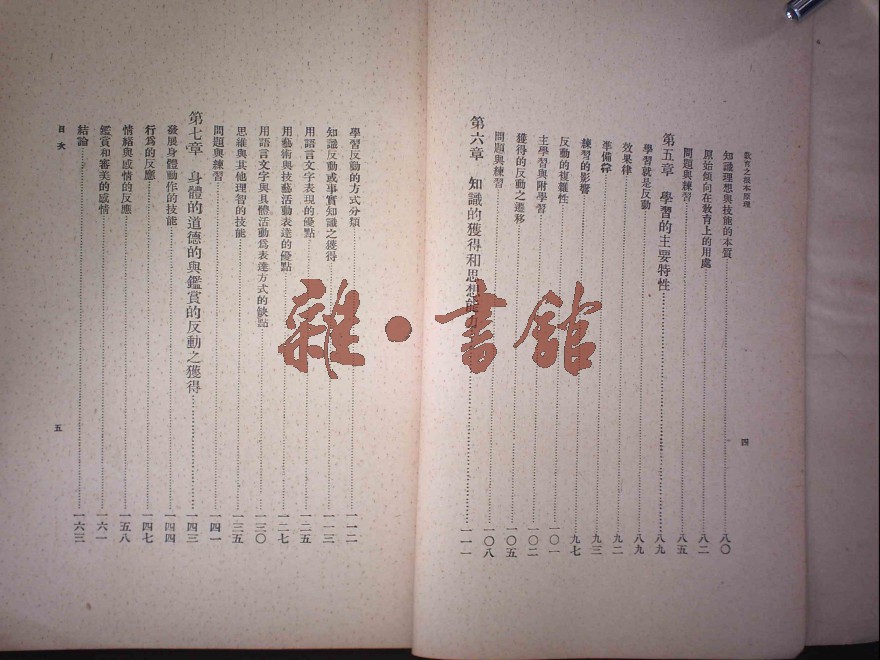 教育之根本原理
知識理想與技能的本質……八〇
原始傾向在教育上的用處……八二
問題與練習……八五
第五章　學習的主要特性……八九
學習就是反動……八九
效果律……九二
準備律……九三
練習的影響……九七
反動的複雜性……一〇一
主學習與附學習……一〇二
獲得的反動之遷移……一〇五
問題與練習……一〇八
第六章　知識的獲得和思想能……一一一
四
學習反動的方式分類……一一二
知識反動或事實知識之獲得……一一三
用語言文字表現的優點……一二五
用藝術與技藝活動表達的優點……一二七
用語言文字與具體活動為表達方式的缺點……一三〇
思維與其他理智的技能……一三五
問題與練習……一四一
第七章　身體的道德的與鑑賞的反動之獲得……一四三
發展身體動作的技能……一四四
行為的反應……一四七
情緒與感情的反應……一五八
鑑賞和審美的感情……一六一
結論……一六三
目次
五
雜·書館